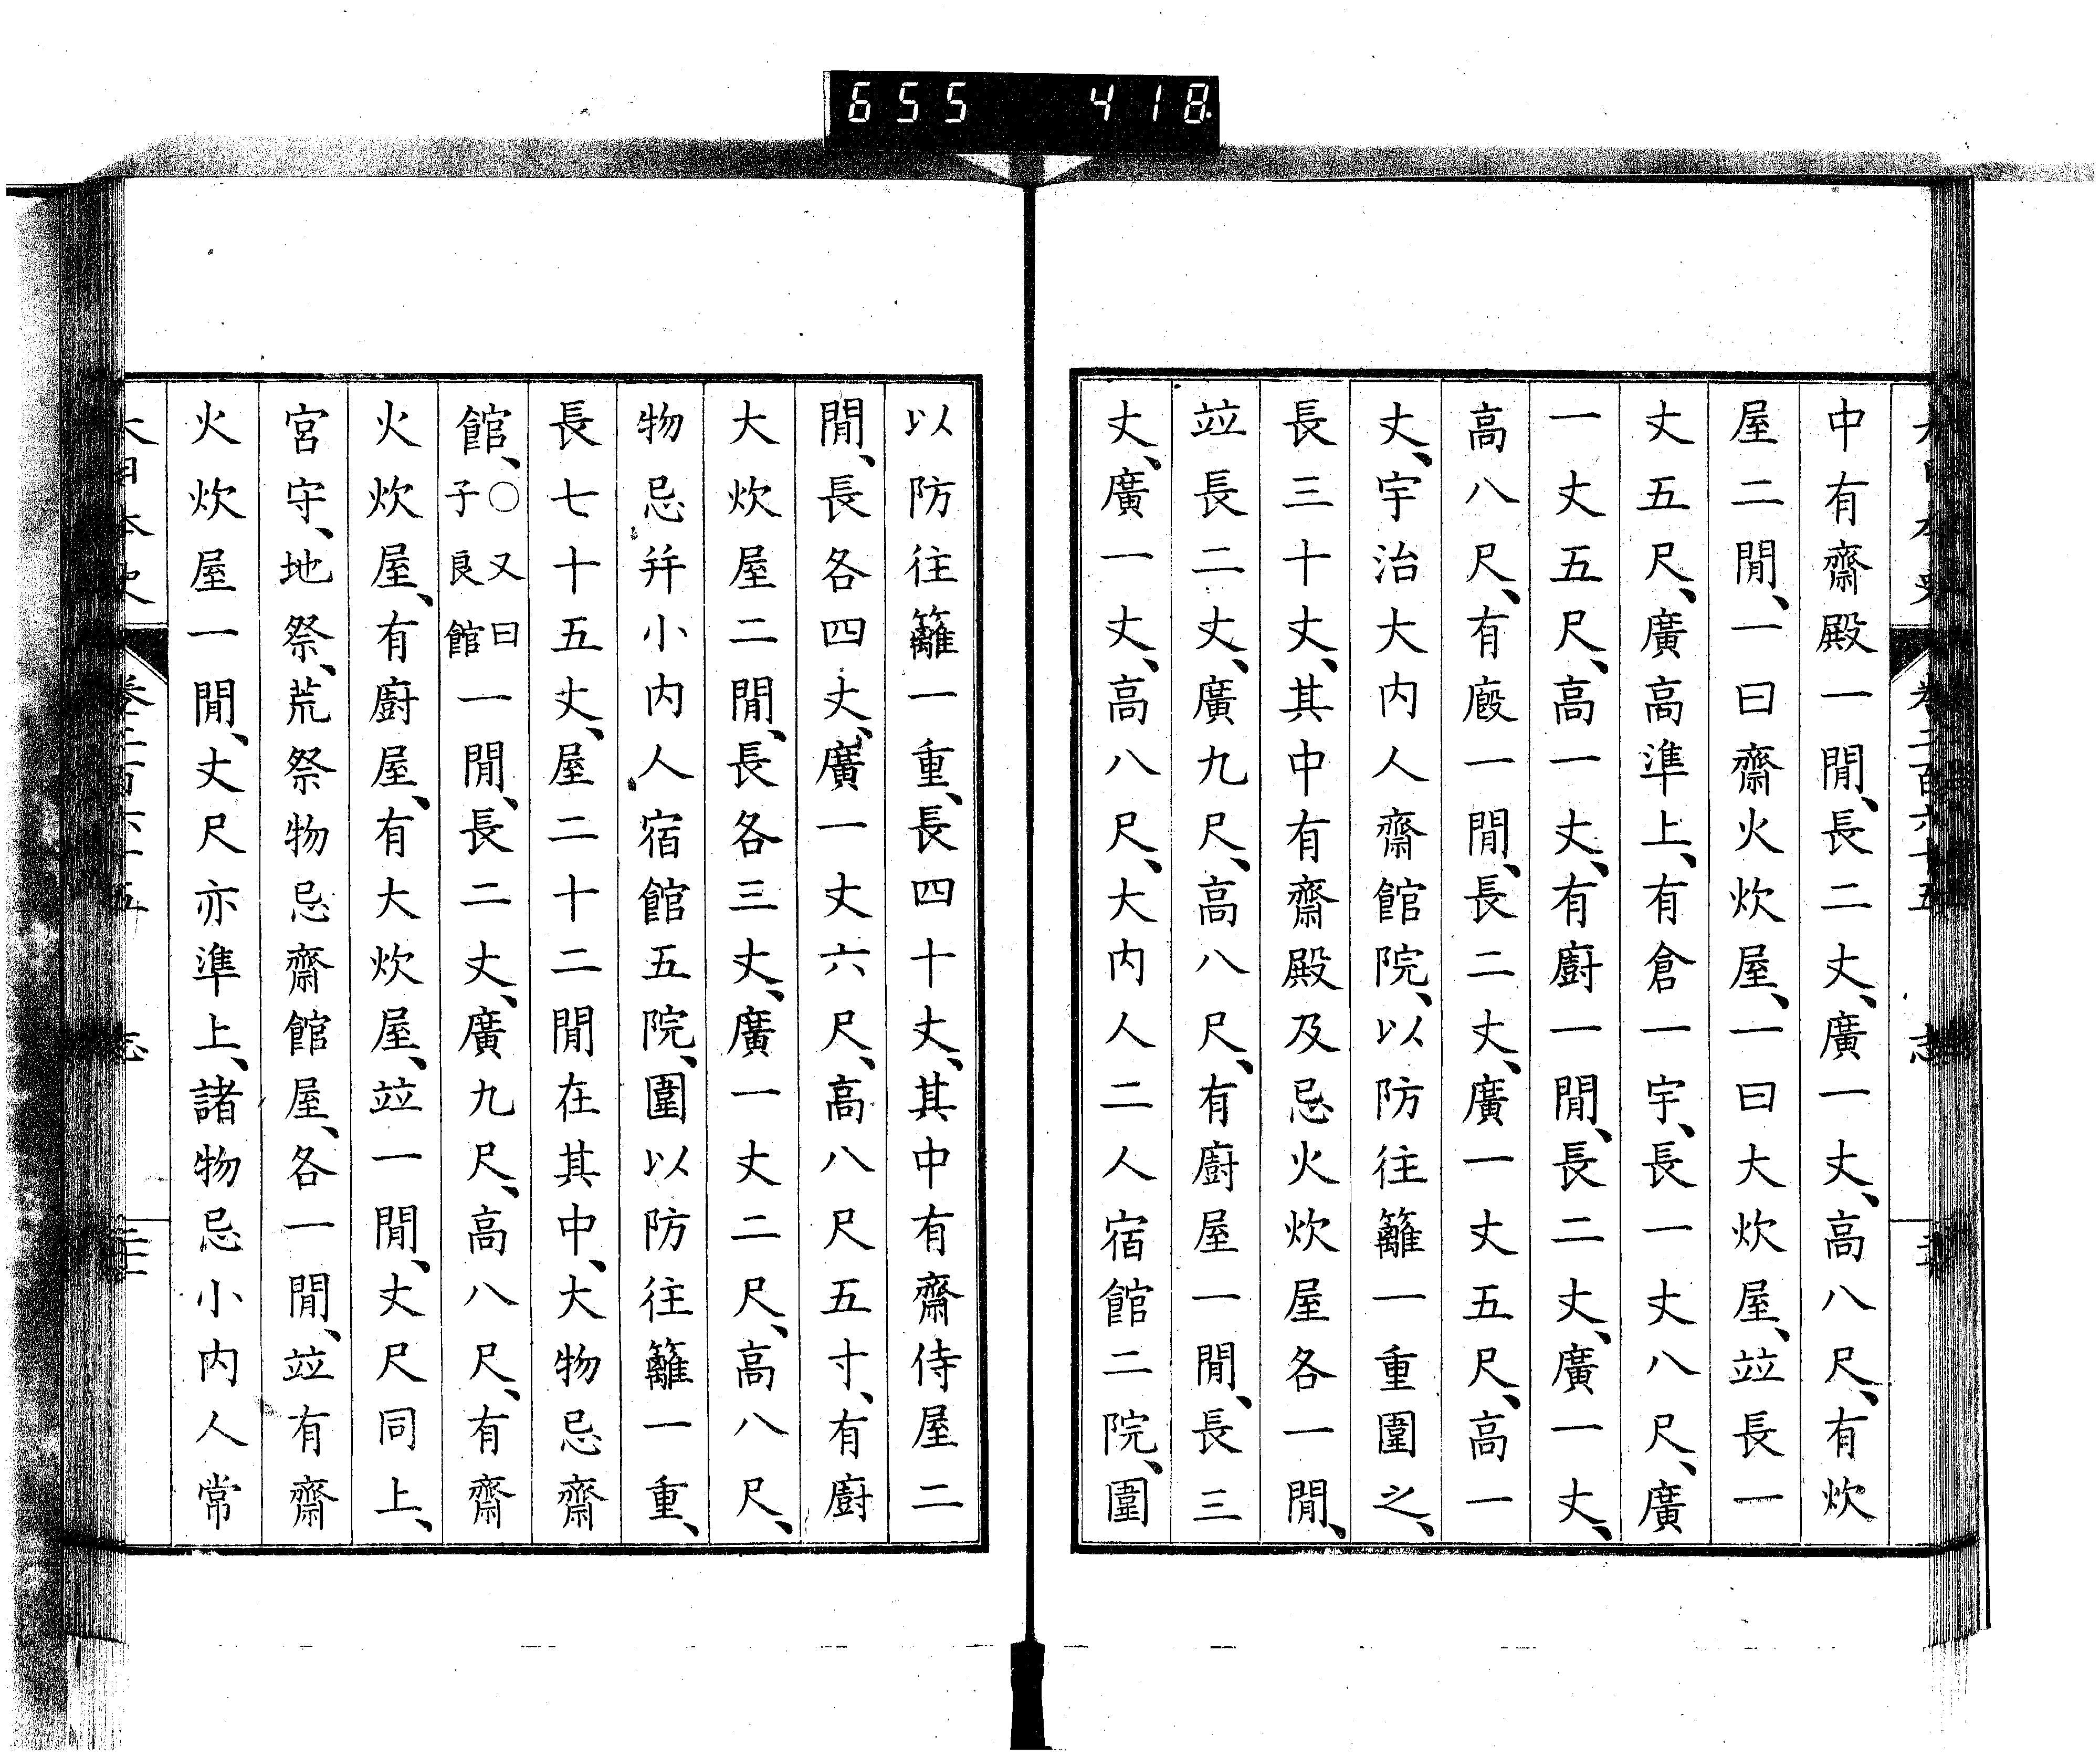 655 418
中有齋殿一閒、長二丈、廣一丈、高八尺、有炊
屋二閒、一曰齋火炊屋、一曰大炊屋、竝長一
丈五尺、廣高準上、有倉一宇、長一丈八尺、廣
一丈五尺、高一丈、有廚一閒、長二丈、廣一丈、
高八尺、有廏一閒、長二丈、廣一丈五尺、高一
丈、宇治大内人齋館院、以防往籬一重圍之、
長三十丈、其中有齋殿及忌火炊屋各一閒、
竝長二丈、廣九尺、高八尺、有廚屋一閒、長三
丈、廣一丈、高八尺、大内人二人宿館二院、圍
以防往籬一重、長四十丈、其中有齋侍屋二
閒、長各四丈、廣一丈六尺、高八尺五寸、有廚
大炊屋二閒、長各三丈、廣一丈二尺、高八尺、
物忌幷小内人宿館五院、圍以防往籬一重、
長七十五丈、屋二十二閒在其中、大物忌齋
館、○又曰子良館一閒、長二丈、廣九尺、高八尺、有齋
火炊屋、有廚屋、有大炊屋、竝一閒、丈尺同上、
宮守、地祭、荒祭物忌齋館屋、各一閒、竝有齋
火炊屋一閒、丈尺亦準上、諸物忌小内人常
大日本史 卷二百六十五 志